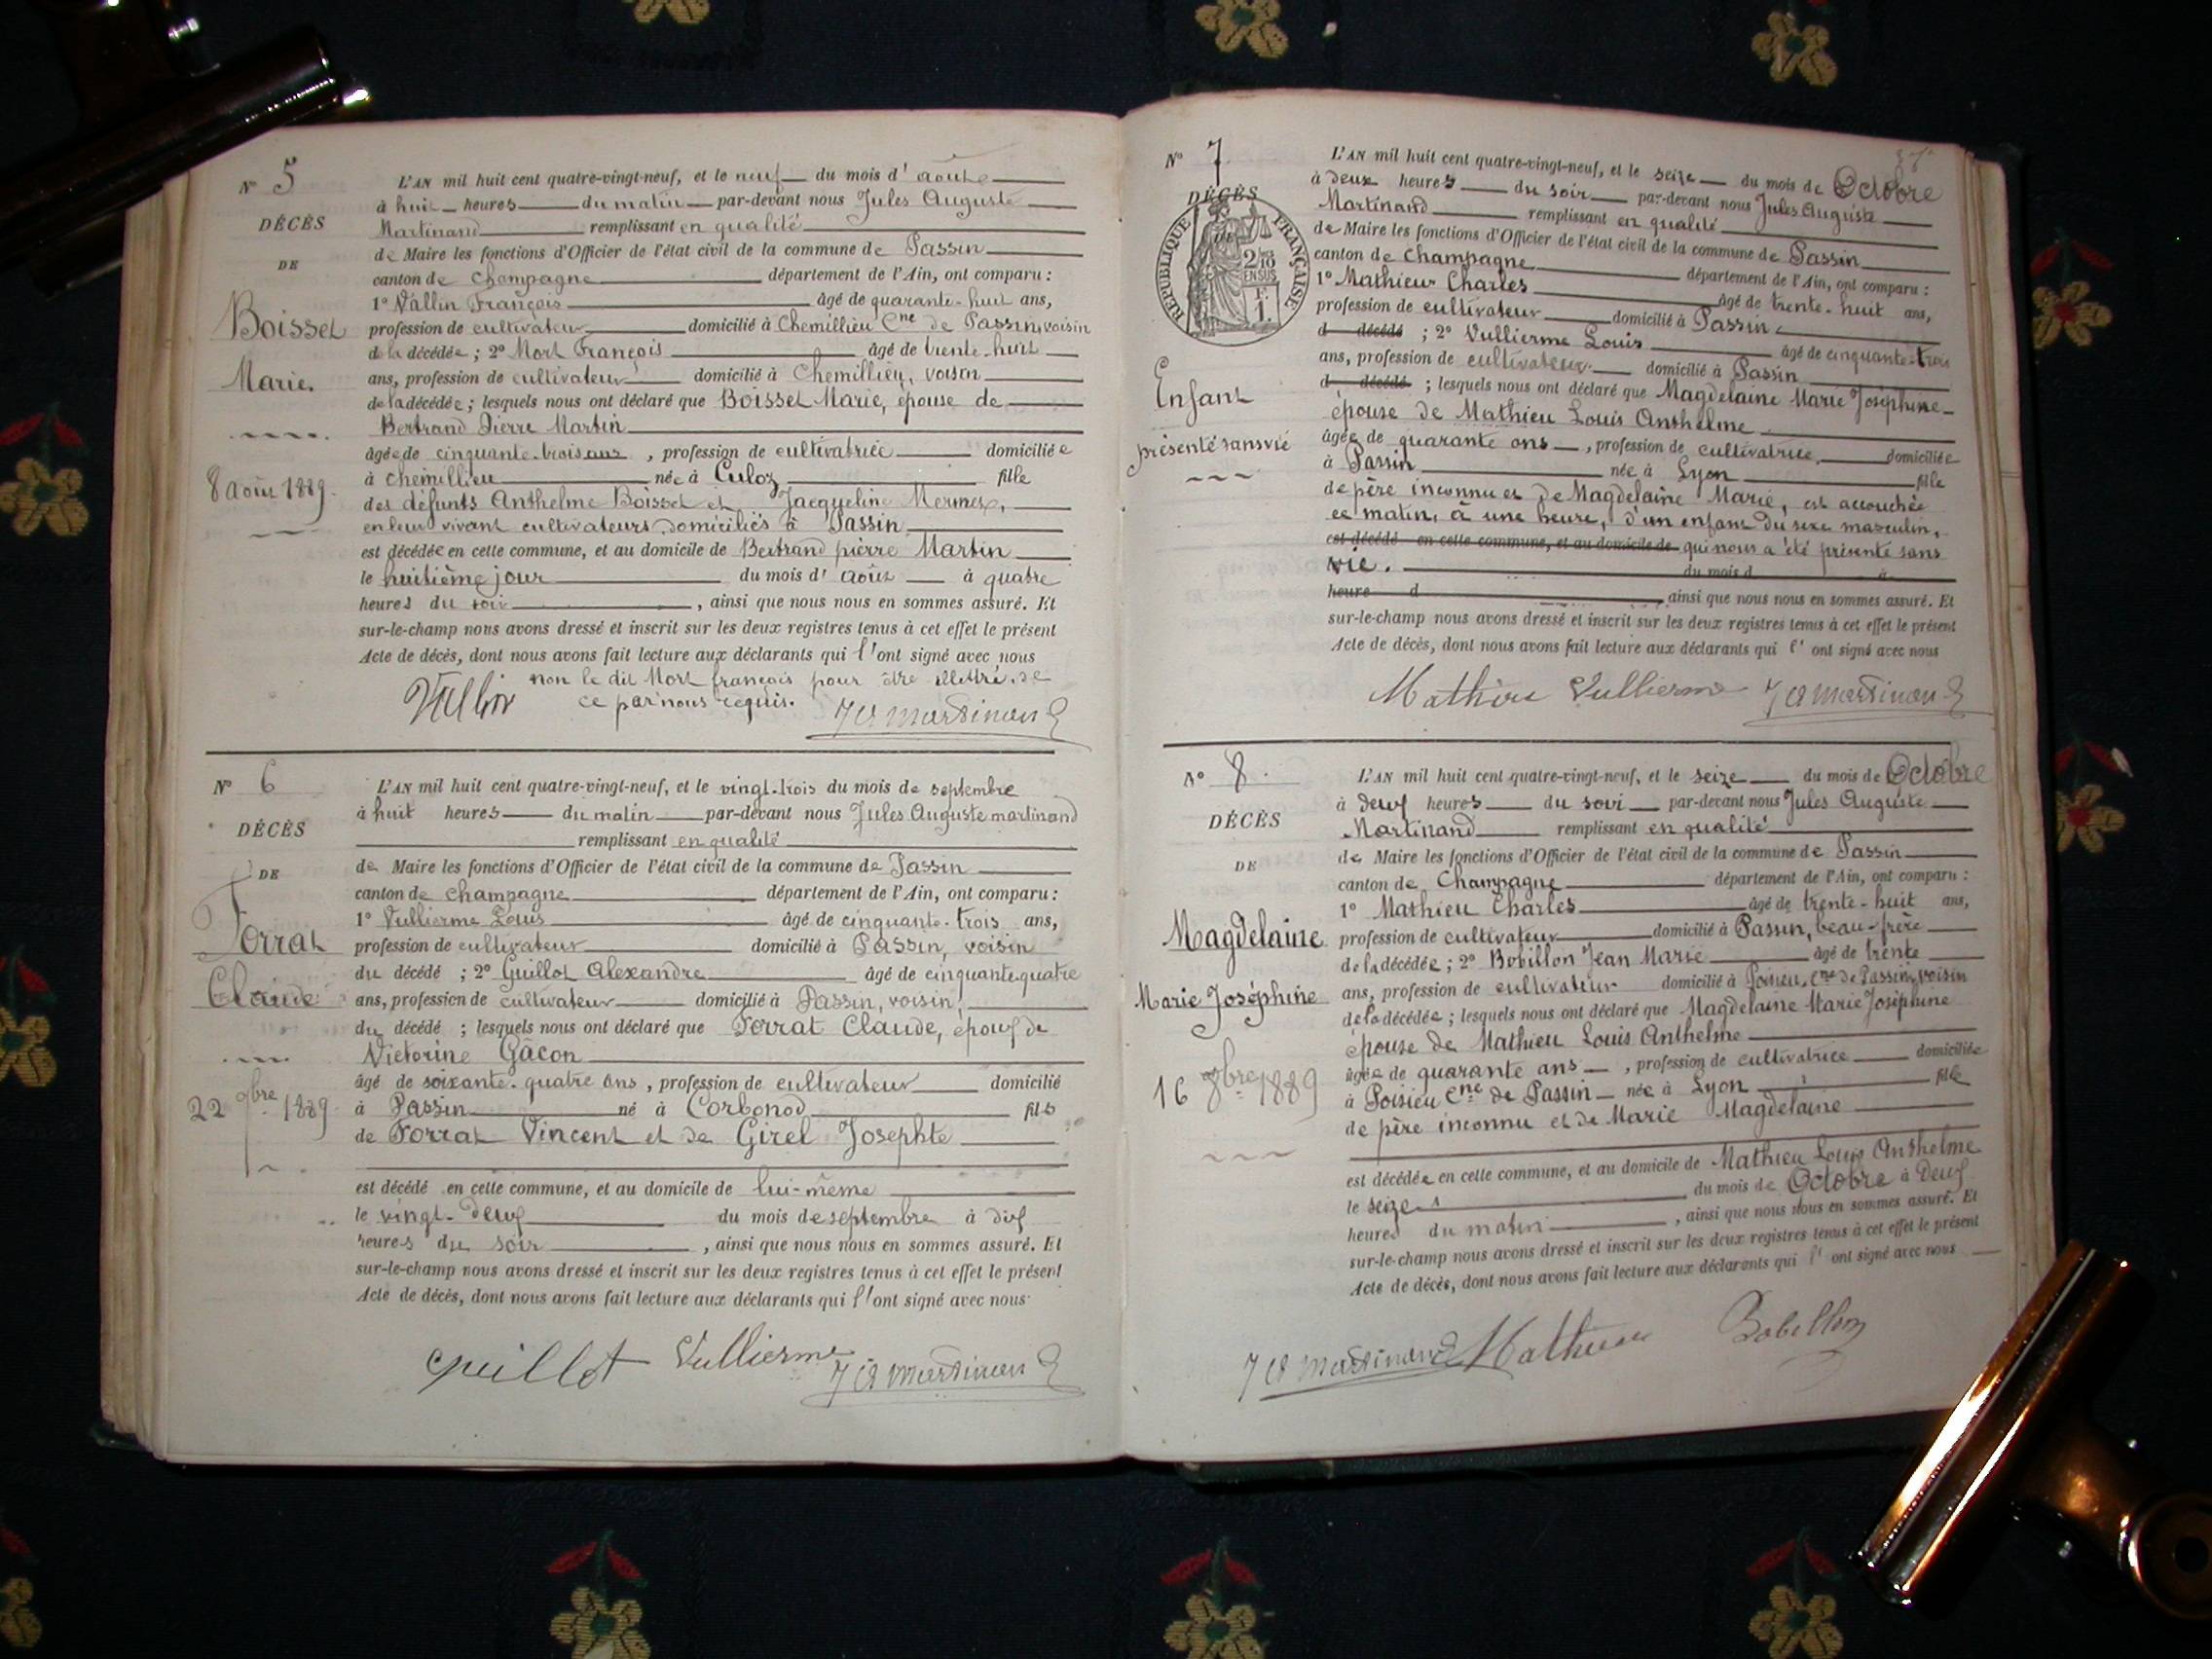 N° 5
DÉCÈS
DE
Boisset
Marie.
8 août 1889.
L'AN mil huit cent quatre-vingt-neuf, et le neuf du mois d'août
à huit heures du matin par-devant nous Jules Auguste
Martinand remplissant en qualité
de Maire les fonctions d'Officier de l'état civil de la commune de Passin
canton de Champagne département de l'Ain, ont comparu :
1° Vallin François âgé de quarante-huit ans,
profession de cultivateur domicilié à Chemillieu Cne de Passin, voisin
de la décédée ; 2° Mort François âgé de trente-huit
ans, profession de cultivateur domicilié à Chemillieu, voisin
de la décédée ; lesquels nous ont déclaré que Boisset Marie, épouse de
Bertrand Pierre Martin
âgée de cinquante-trois ans, profession de cultivatrice domiciliée
à chemillieu née à Culoz fille
des défunts Anthelme Boisset et Jacqueline Mermex,
en leur vivant cultivateurs domiciliés à Passin
est décédée en cette commune, et au domicile de Bertrand pierre Martin
le huitième jour du mois d'août à quatre
heures du soir, ainsi que nous nous en sommes assuré. Et
sur-le-champ nous avons dressé et inscrit sur les deux registres tenus à cet effet le présent
Acte de décès, dont nous avons fait lecture aux déclarants qui l'ont signé avec nous
non le dit Mort françois pour être illettré, de
ce par nous requis.
Vallin J A Martinand
N° 6
DÉCÈS
DE
Forrat
Claude
22 9bre 1889.
L'AN mil huit cent quatre-vingt-neuf, et le vingt-trois du mois de septembre
à huit heures du matin par-devant nous Jules Auguste martinand
remplissant en qualité
de Maire les fonctions d'Officier de l'état civil de la commune de Passin
canton de Champagne département de l'Ain, ont comparu :
1° Vullierme Louis âgé de cinquante-trois ans,
profession de cultivateur domicilié à Passin, voisin
du décédé ; 2° Guillot Alexandre âgé de cinquante quatre
ans, profession de cultivateur domicilié à Passin, voisin,
du décédé ; lesquels nous ont déclaré que Forrat Claude, époux de
Victorine Gâcon
âgé de soixante-quatre ans, profession de cultivateur domicilié
à Passin né à Corbonod fils
de Forrat Vincent et de Girel Josephte
est décédé en cette commune, et au domicile de lui-même
le vingt-deux du mois de septembre à dix
heures du soir, ainsi que nous nous en sommes assuré. Et
sur-le-champ nous avons dressé et inscrit sur les deux registres tenus à cet effet le présent
Acte de décès, dont nous avons fait lecture aux déclarants qui l'ont signé avec nous
Guillot Vullierme J A Martinand
N° 7
DÉCÈS
RÉPUBLIQUE FRANÇAISE
2/10 EN SUS
F. 1.
Enfant
présenté sans vie
L'AN mil huit cent quatre-vingt-neuf, et le seize du mois de Octobre
à deux heures du soir par-devant nous Jules Auguste
Martinand remplissant en qualité
de Maire les fonctions d'Officier de l'état civil de la commune de Passin
canton de Champagne département de l'Ain, ont comparu :
1° Mathieu Charles âgé de trente-huit ans,
profession de cultivateur domicilié à Passin
d décédé ; 2° Vullierme Louis âgé de cinquante-trois
ans, profession de cultivateur domicilié à Passin
d décédé ; lesquels nous ont déclaré que Magdelaine Marie Joséphine
épouse de Mathieu Louis Anthelme
âgée de quarante ans, profession de cultivatrice domiciliée
à Passin née à Lyon fille
de père inconnu et de Magdelaine Marie, est accouchée
ce matin, à une heure, d'un enfant du sexe masculin,
est décédé en cette commune, et au domicile de qui nous a été présenté sans
vie. du mois d à
heure d ainsi que nous nous en sommes assuré. Et
sur-le-champ nous avons dressé et inscrit sur les deux registres tenus à cet effet le présent
Acte de décès, dont nous avons fait lecture aux déclarants qui l'ont signé avec nous
Mathieu Vullierme J A Martinand
N° 8.
DÉCÈS
DE
Magdelaine
Marie Joséphine
16 8bre 1889
L'AN mil huit cent quatre-vingt-neuf, et le seize du mois de Octobre
à deux heures du sovi par-devant nous Jules Auguste
Martinand remplissant en qualité
de Maire les fonctions d'Officier de l'état civil de la commune de Passin
canton de Champagne département de l'Ain, ont comparu :
1° Mathieu Charles âgé de trente-huit ans,
profession de cultivateur domicilié à Passin, beau-frère
de la décédée ; 2° Bobillon Jean Marie âgé de trente
ans, profession de cultivateur domicilié à Poisieu, Cne de Passin, voisin
de la décédée ; lesquels nous ont déclaré que Magdelaine Marie Joséphine
épouse de Mathieu Louis Anthelme
âgée de quarante ans, profession de cultivatrice domiciliée
à Poisieu Cne de Passin née à Lyon fille
de père inconnu et de Marie Magdelaine
est décédée en cette commune, et au domicile de Mathieu Louis Anthelme
le seize du mois de Octobre à deux
heures du matin, ainsi que nous nous en sommes assuré. Et
sur-le-champ nous avons dressé et inscrit sur les deux registres tenus à cet effet le présent
Acte de décès, dont nous avons fait lecture aux déclarants qui l'ont signé avec nous
J A Martinand Mathieu Bobillon